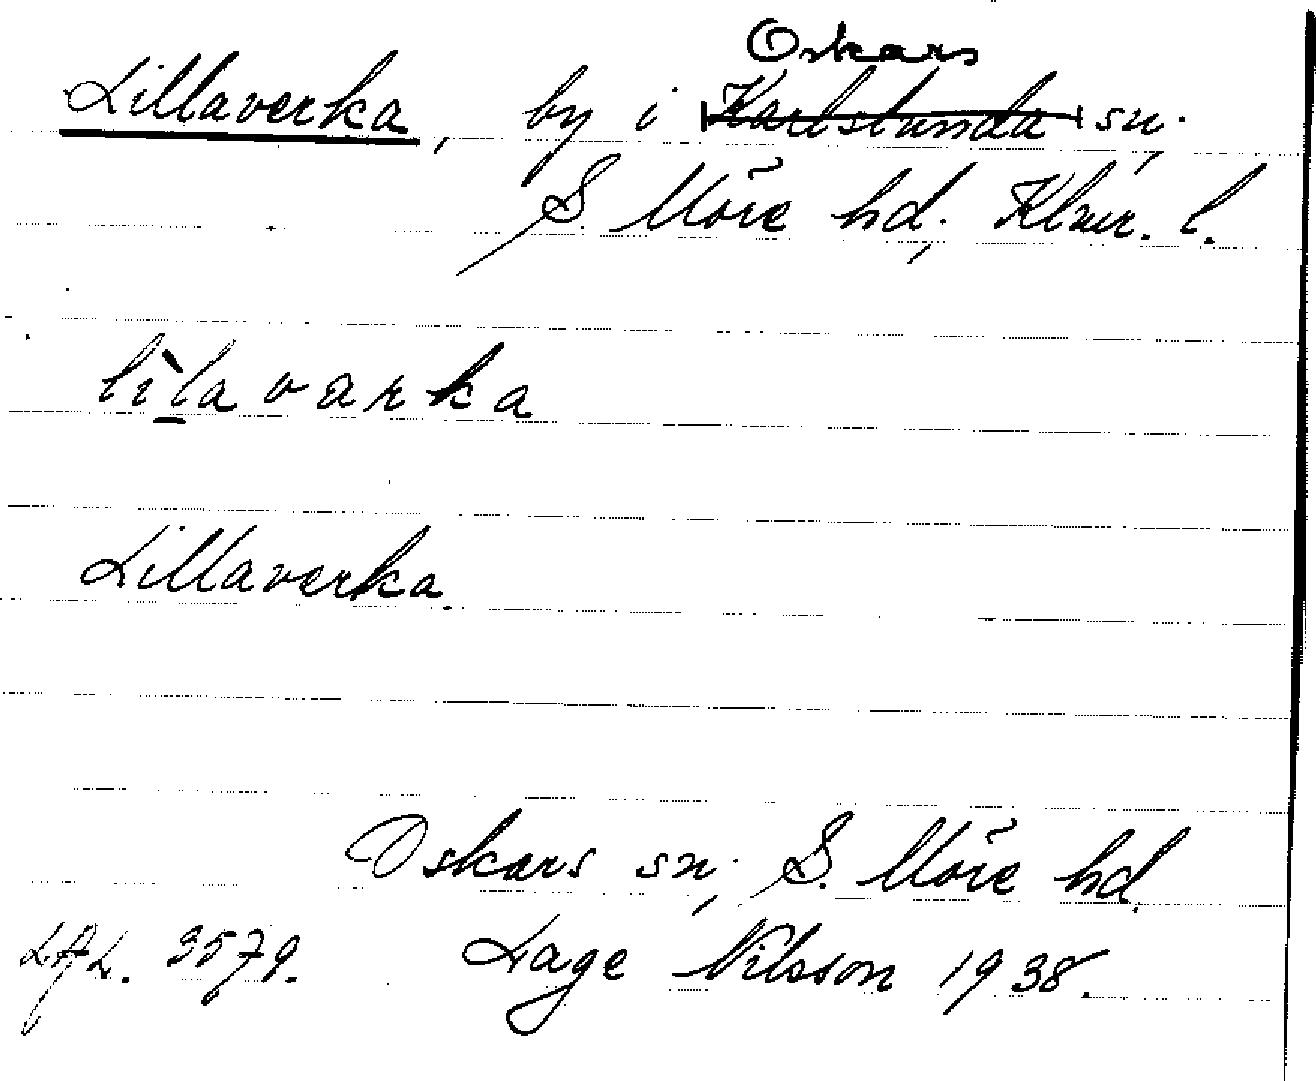 Oskars
Lillaverka, by i Karlslunda sn.,
S. Möre hd., Klmr. l.
lìlavarka
Lillaverka.
Oskars sn., S. Möre hd.
LAL. 3579. Lage Nilsson 1938.